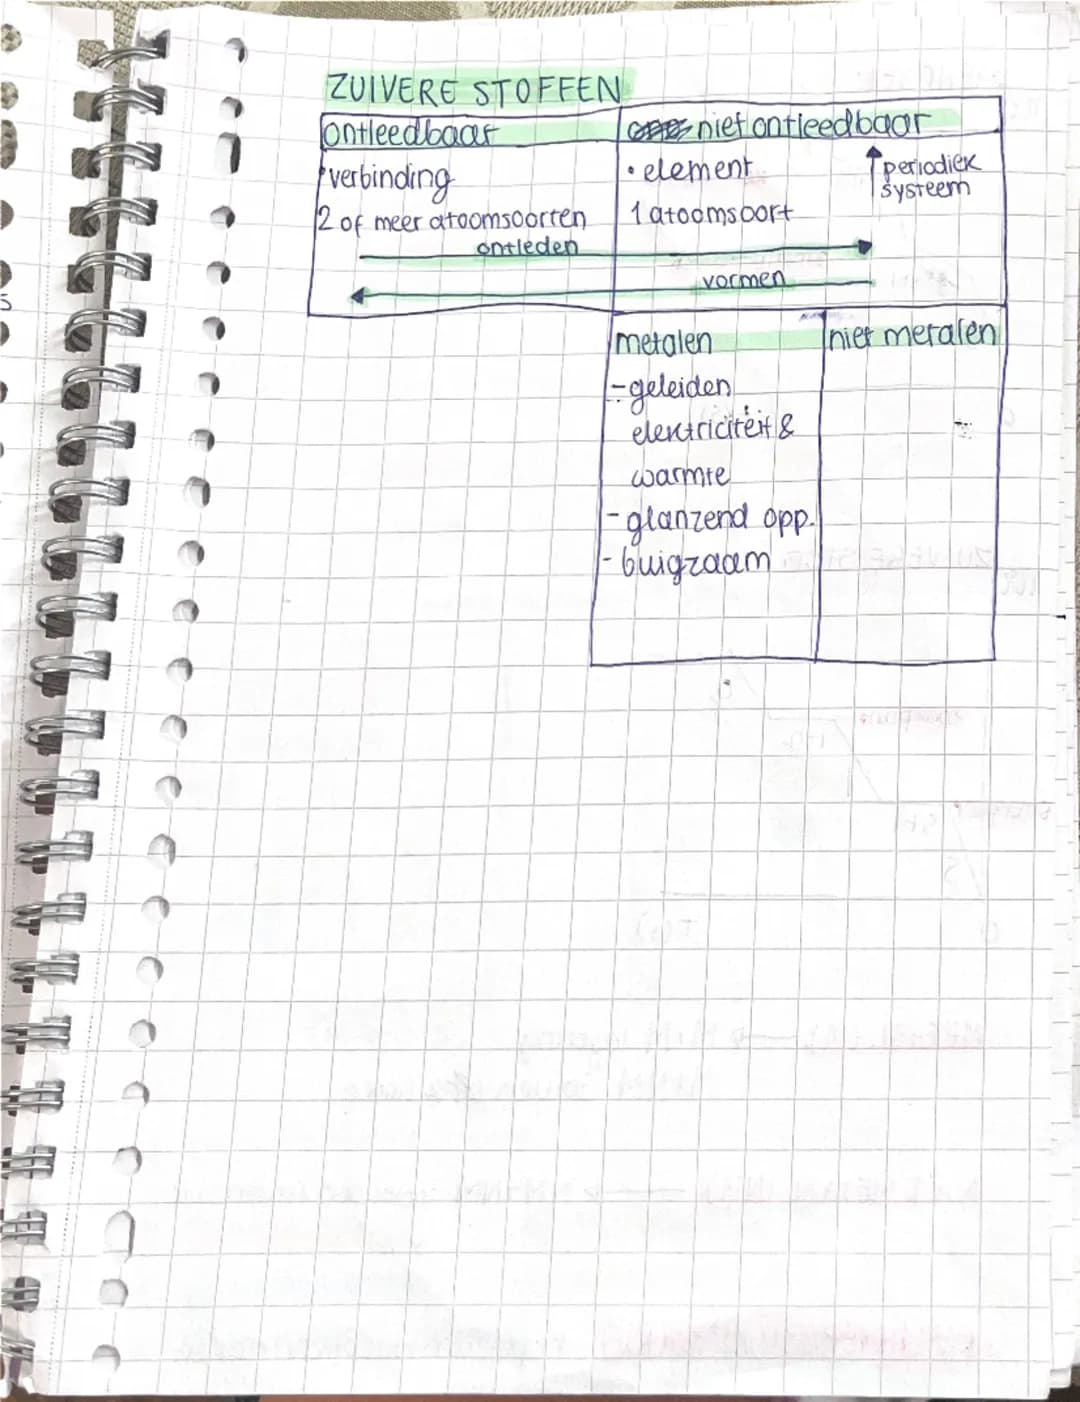 ZUIVERE STOFFEN
ontleedbaar
niet ontleedbaar
• verbinding
2 of meer atoomsoorten
• element
1 atoomsoort
periodiek
systeem
ontleden
vormen
metalen
niet metalen
- geleiden
elektriciteit &
warmte
- glanzend opp.
- buigzaam